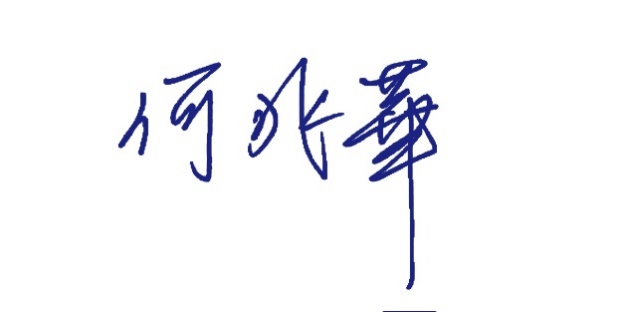 何兆華